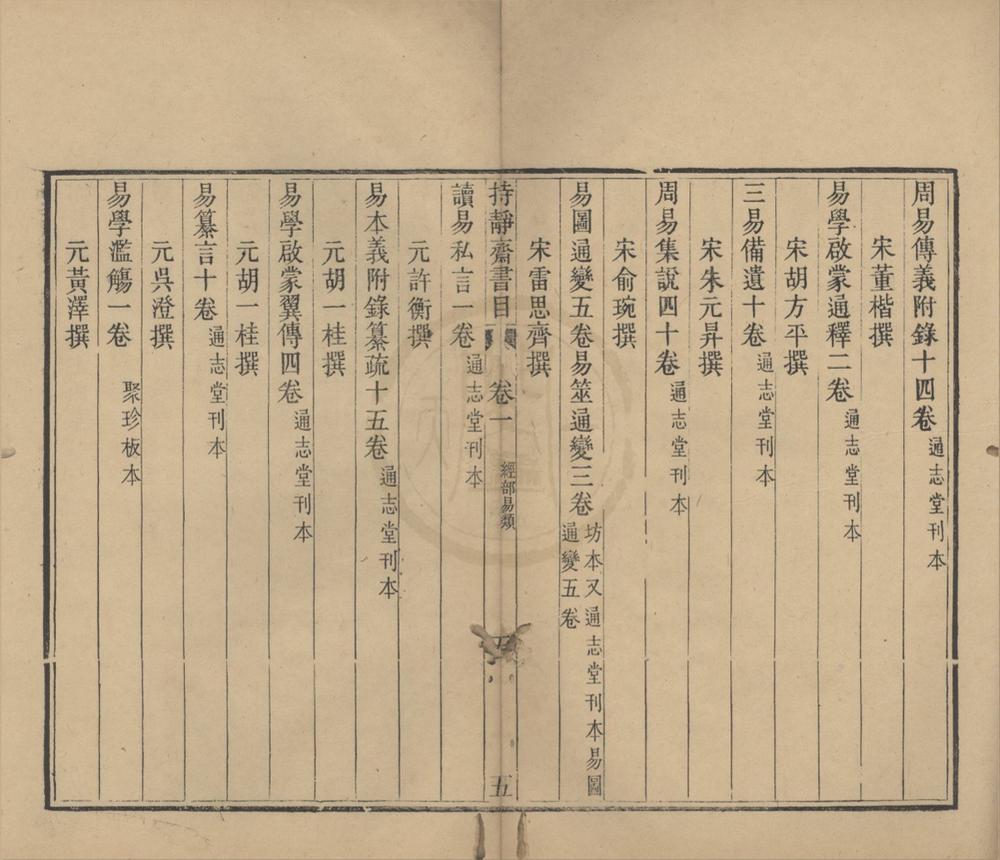 周易傳義附錄十四卷 通志堂刊本
宋董楷撰
易學啟蒙通釋二卷 通志堂刊本
宋胡方平撰
三易備遺十卷 通志堂刊本
宋朱元昇撰
周易集說四十卷 通志堂刊本
宋俞琬撰
易圖通變五卷易筮通變三卷 坊本又通志堂刊本易圖
通變五卷
宋雷思齊撰
持靜齋書目 卷一 經部易類 五
讀易私言一卷 通志堂刊本
元許衡撰
易本義附錄纂疏十五卷 通志堂刊本
元胡一桂撰
易學啟蒙翼傳四卷 通志堂刊本
元胡一桂撰
易纂言十卷 通志堂刊本
元吳澄撰
易學濫觴一卷 聚珍板本
元黃澤撰